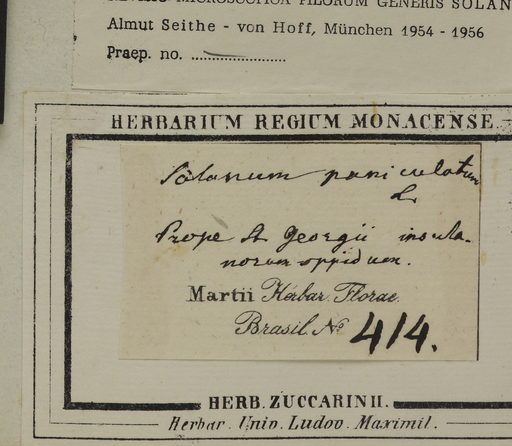 MICROSCOPICA PILORUM GENERIS SOLAN
Almut Seithe - von Hoff, München 1954 - 1956
Praep. no.
HERBARIUM REGIUM MONACENSE.
Solanum paniculatum
L.
Prope St Georgii insula-
norum oppidum.
Martii Herbar. Florae
Brasil. No 414.
HERB. ZUCCARINII.
Herbar. Univ. Ludov. Maximil.